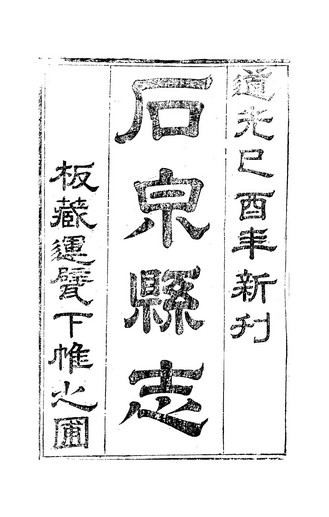 道光己酉年新刊
石泉縣志
板藏運甓下帷之圃